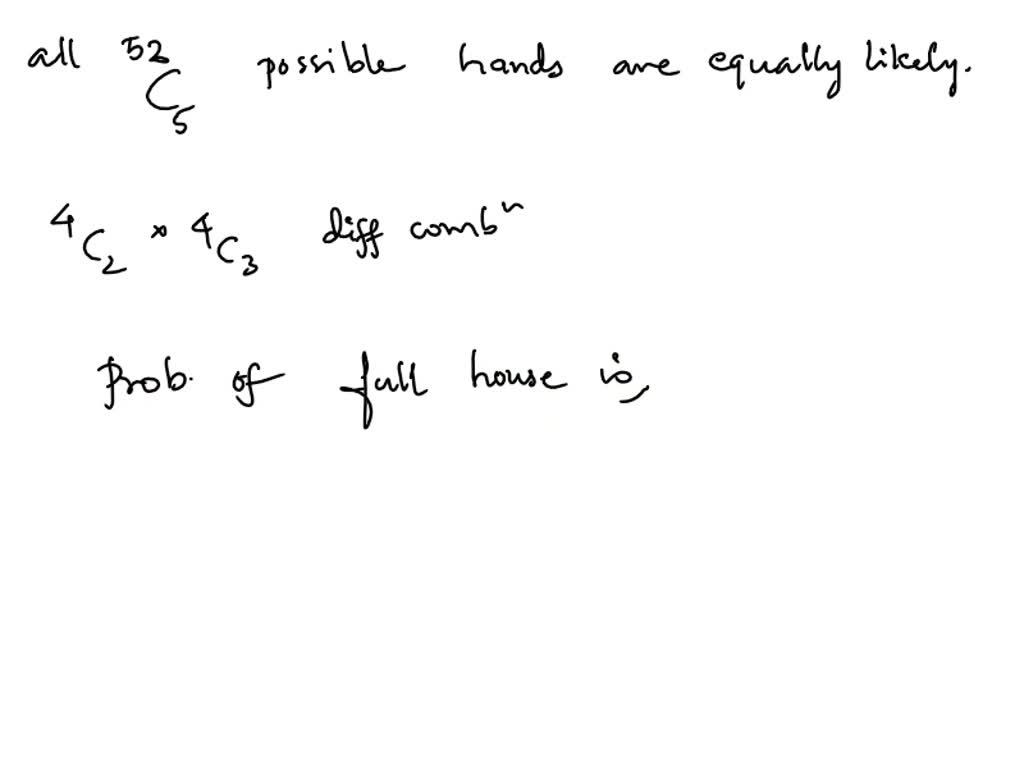 all ⁵²C₅ possible hands are equally likely.
⁴C₂ × ⁴C₃ diff combⁿ
Prob. of full house is,